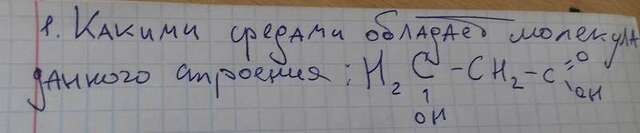 1. Какими средами обладает молекула
данного строения: H₂C-CH₂-C=O
OH OH